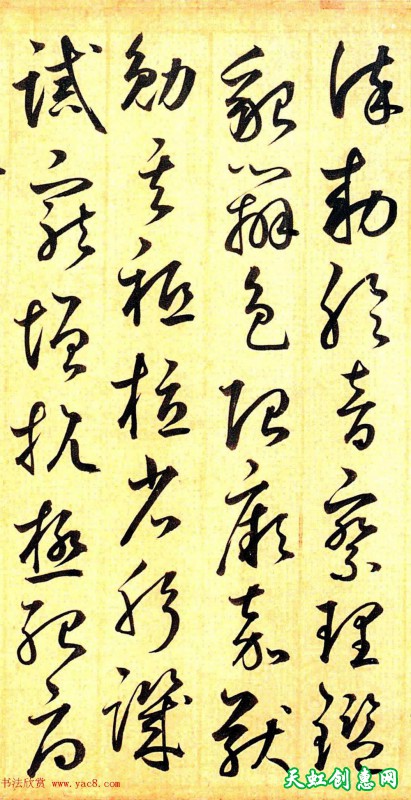 謹勅聆音察理鑑
貌辨色貽厥嘉猷
勉其祗植省躬譏
誡寵增抗極殆辱
书法欣赏 www.yac8.com
天虹创惠网